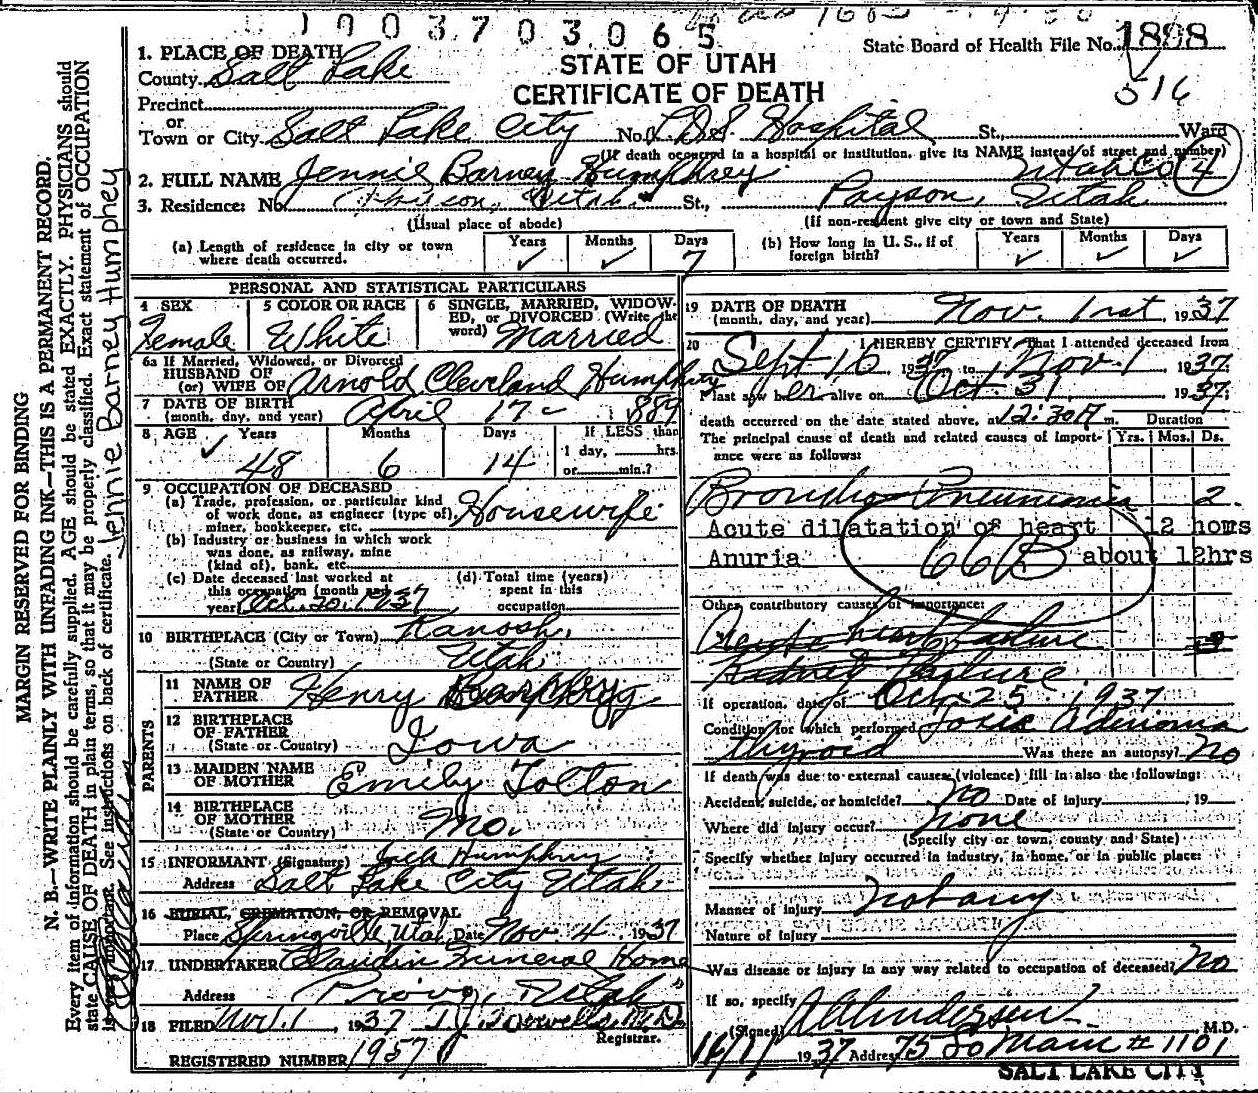 1003703065
State Board of Health File No. 1898
516
1. PLACE OF DEATH
County Salt Lake
STATE OF UTAH
CERTIFICATE OF DEATH
Precinct
or
Town or City Salt Lake City No. L.D.S. Hospital St., Ward
(If death occurred in a hospital or institution, give its NAME instead of street and number)
Utah Co 4
2. FULL NAME Jennie Barney Humphrey
3. Residence: No. Payson, Utah St., Payson, Utah
(Usual place of abode) (If non-resident give city or town and State)
(a) Length of residence in city or town where death occurred. Years ✓ Months ✓ Days 7
(b) How long in U. S., if of foreign birth? Years ✓ Months ✓ Days ✓
PERSONAL AND STATISTICAL PARTICULARS
4 SEX Female
5 COLOR OR RACE White
6 SINGLE, MARRIED, WIDOWED, or DIVORCED (Write the word) Married
6a If Married, Widowed, or Divorced
HUSBAND OF
(or) WIFE OF Arnold Cleveland Humphrey
7 DATE OF BIRTH
(month, day, and year) April 17 - 1889
8 AGE Years 48 Months 6 Days 14 If LESS than 1 day, hrs. or min.?
9 OCCUPATION OF DECEASED
(a) Trade, profession, or particular kind of work done, as engineer (type of), miner, bookkeeper, etc. Housewife
(b) Industry or business in which work was done, as railway, mine (kind of), bank, etc.
(c) Date deceased last worked at this occupation (month and year) Oct. 20, 1937
(d) Total time (years) spent in this occupation
10 BIRTHPLACE (City or Town) Kanosh,
(State or Country) Utah
PARENTS
11 NAME OF FATHER Henry
12 BIRTHPLACE OF FATHER
(State or Country) Iowa
13 MAIDEN NAME OF MOTHER Emily Tolton
14 BIRTHPLACE OF MOTHER
(State or Country) Mo.
15 INFORMANT (Signature) Jack Humphrey
Address Salt Lake City Utah
16 BURIAL, CREMATION, OR REMOVAL
Place Springville Utah Date Nov. 4 1937
17 UNDERTAKER Claudin Funeral Home
Address Provo, Utah
18 FILED Nov. 1, 1937 M.D.
Registrar.
REGISTERED NUMBER 1957
19 DATE OF DEATH
(month, day, and year) Nov. 1st, 1937
20 I HEREBY CERTIFY That I attended deceased from
Sept 16 1937 to Nov. 1 1937
I last saw her alive on Oct. 31 1937
death occurred on the date stated above, at 12:30 A m.
The principal cause of death and related causes of importance were as follows:
Duration
Yrs. Mos. Ds.
Broncho Pneumonia 2
Acute dilatation of heart 12 hours
Anuria about 12hrs
66B
Other contributory causes of importance:
Acute heart failure
Kidney Failure
If operation, date of Oct 25 1937
Condition for which performed Toxic Adenoma
thyroid Was there an autopsy? No
If death was due to external causes (violence) fill in also the following:
Accident, suicide, or homicide? No Date of injury , 19
Where did injury occur? None
(Specify city or town, county and State)
Specify whether injury occurred in industry, in home, or in public place:
Manner of injury Not any
Nature of injury
Was disease or injury in any way related to occupation of deceased? No
If so, specify
(Signed) M.D.
11/1/ 1937 Address 75 So Main # 1101
SALT LAKE CITY
MARGIN RESERVED FOR BINDING
N. B.—WRITE PLAINLY WITH UNFADING INK—THIS IS A PERMANENT RECORD.
Every item of information should be carefully supplied. AGE should be stated EXACTLY. PHYSICIANS should
state CAUSE OF DEATH in plain terms, so that it may be properly classified. Exact statement of OCCUPATION
is very important. See instructions on back of certificate.
Jennie Barney Humphey